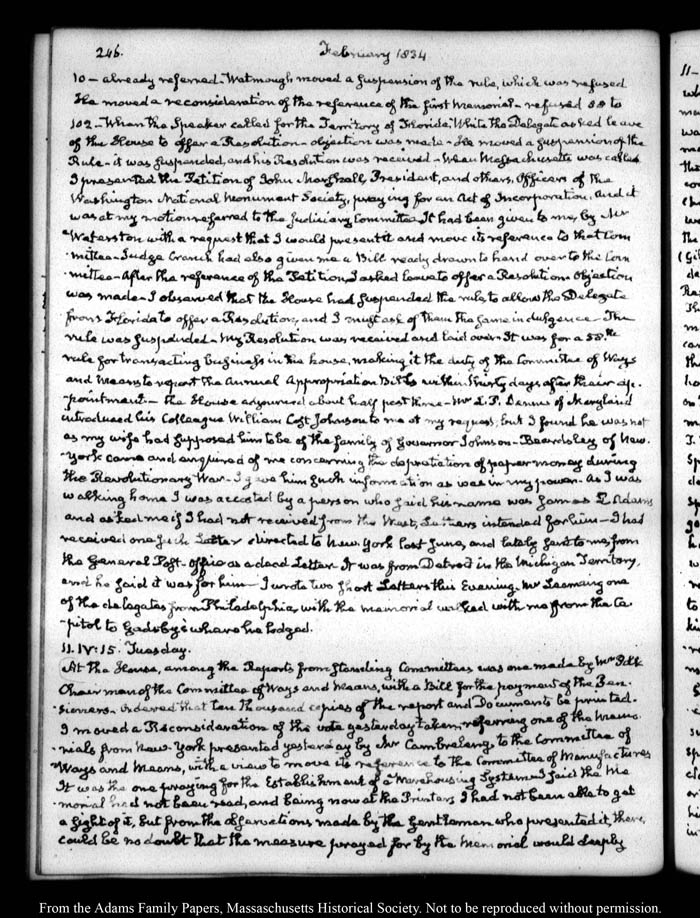 246. February 1834
10 — already referred. Watmough moved a suspension of the rule, which was refused
He moved a reconsideration of the reference of the first Memorial — refused 88 to
102 — When the Speaker called for the Territory of Florida. White the Delegate asked leave
of the House to offer a Resolution — objection was made — He moved a suspension of the
Rule — it was suspended, and his Resolution was received — When Massachusetts was called
I presented the Petition of John Marshall, President, and others, Officers of the
Washington National Monument Society, praying for an Act of Incorporation, and it
was at my motion referred to the Judiciary Committee. It had been given to me, by Mr
Waterston with a request that I would present it and move its reference to that Com
mittee — Judge Cranch had also given me a Bill ready drawn to hand over to the Com
mittee — After the reference of the Petition, I asked leave to offer a Resolution. Objection
was made — I observed that the House had suspended the rule, to allow the Delegate
from Florida to offer a Resolution, and I must ask of them the same indulgence — The
rule was suspended — My Resolution was received and laid over. It was for a 58.th
rule for transacting business in the house, making it the duty of the Committee of Ways
and Means to report the Annual Appropriation Bills within thirty days after their ap-
pointment — the House adjourned about half past three — Mr L. P. Dennis of Maryland
introduced his Colleague William Cost Johnson to me at my request, but I found he was not
as my wife had supposed him to be of the family of Governor Johnson — Beardsley of New-
York came and enquired of me concerning the depreciation of paper money during
the Revolutionary War — I gave him such information as was in my power. As I was
walking home I was accosted by a person who said his name was James L Adams
and asked me if I had not received from the West, Letters intended for him — I had
received one such Letter directed to New York last June, and lately sent to me from
the General Post-office as a dead Letter. It was from Detroit in the Michigan Territory,
and he said it was for him — I wrote two short Letters this Evening. Mr one
of the delegates from Philadelphia, with the memorial walked with me from the Ca
pitol to Gadsby's where he lodged.
11. IV:15. Tuesday.
At the House, among the Reports from standing Committees was one made by Mr Polk
Chairman of the Committee of Ways and Means, with a Bill for the payment of the Pen
sioners. Ordered that ten thousand copies of the report and Documents be printed.
I moved a Reconsideration of the vote yesterday taken, referring one of the memo
rials from New-York presented yesterday by Mr Cambreleng to the Committee of
Ways and Means, with a view to move its reference to the Committee of Manufactures
It was the one praying for the Establishment of a Warehousing System — I said the Me
morial had not been read, and being now at the Printers, I had not been able to get
a sight of it, but from the observations made by the Gentleman who presented it, there
could be no doubt that the measure prayed for by the Memorial would deeply
From the Adams Family Papers, Massachusetts Historical Society. Not to be reproduced without permission.